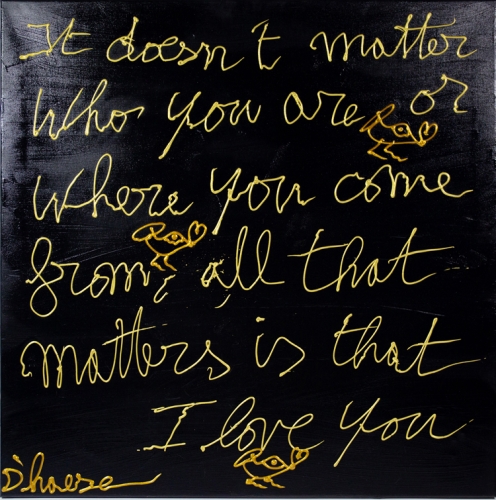 It doesn't matter
Who you are or
where you come
from, all that
matters is that
I love you
D'haese